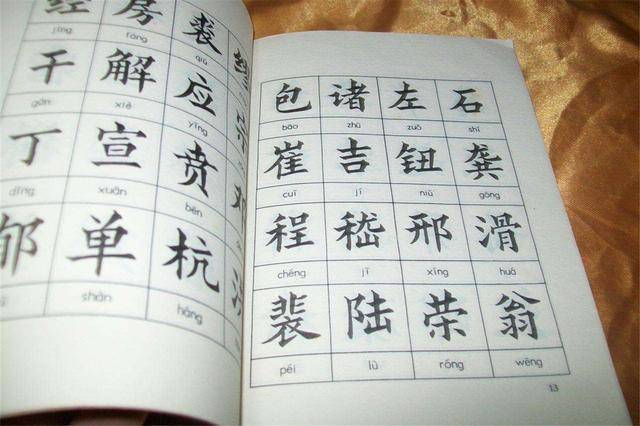 经 房 裘
jīng fáng qiú
干 解 应
gān xiè yīng
丁 宣 贲
dīng xuān bēn
郁 单 杭
shàn háng
包 诸 左 石
bāo zhū zuǒ shí
崔 吉 钮 龚
cuī jí niǔ gōng
程 嵇 邢 滑
chéng jī xíng huá
裴 陆 荣 翁
péi lù róng wēng
13